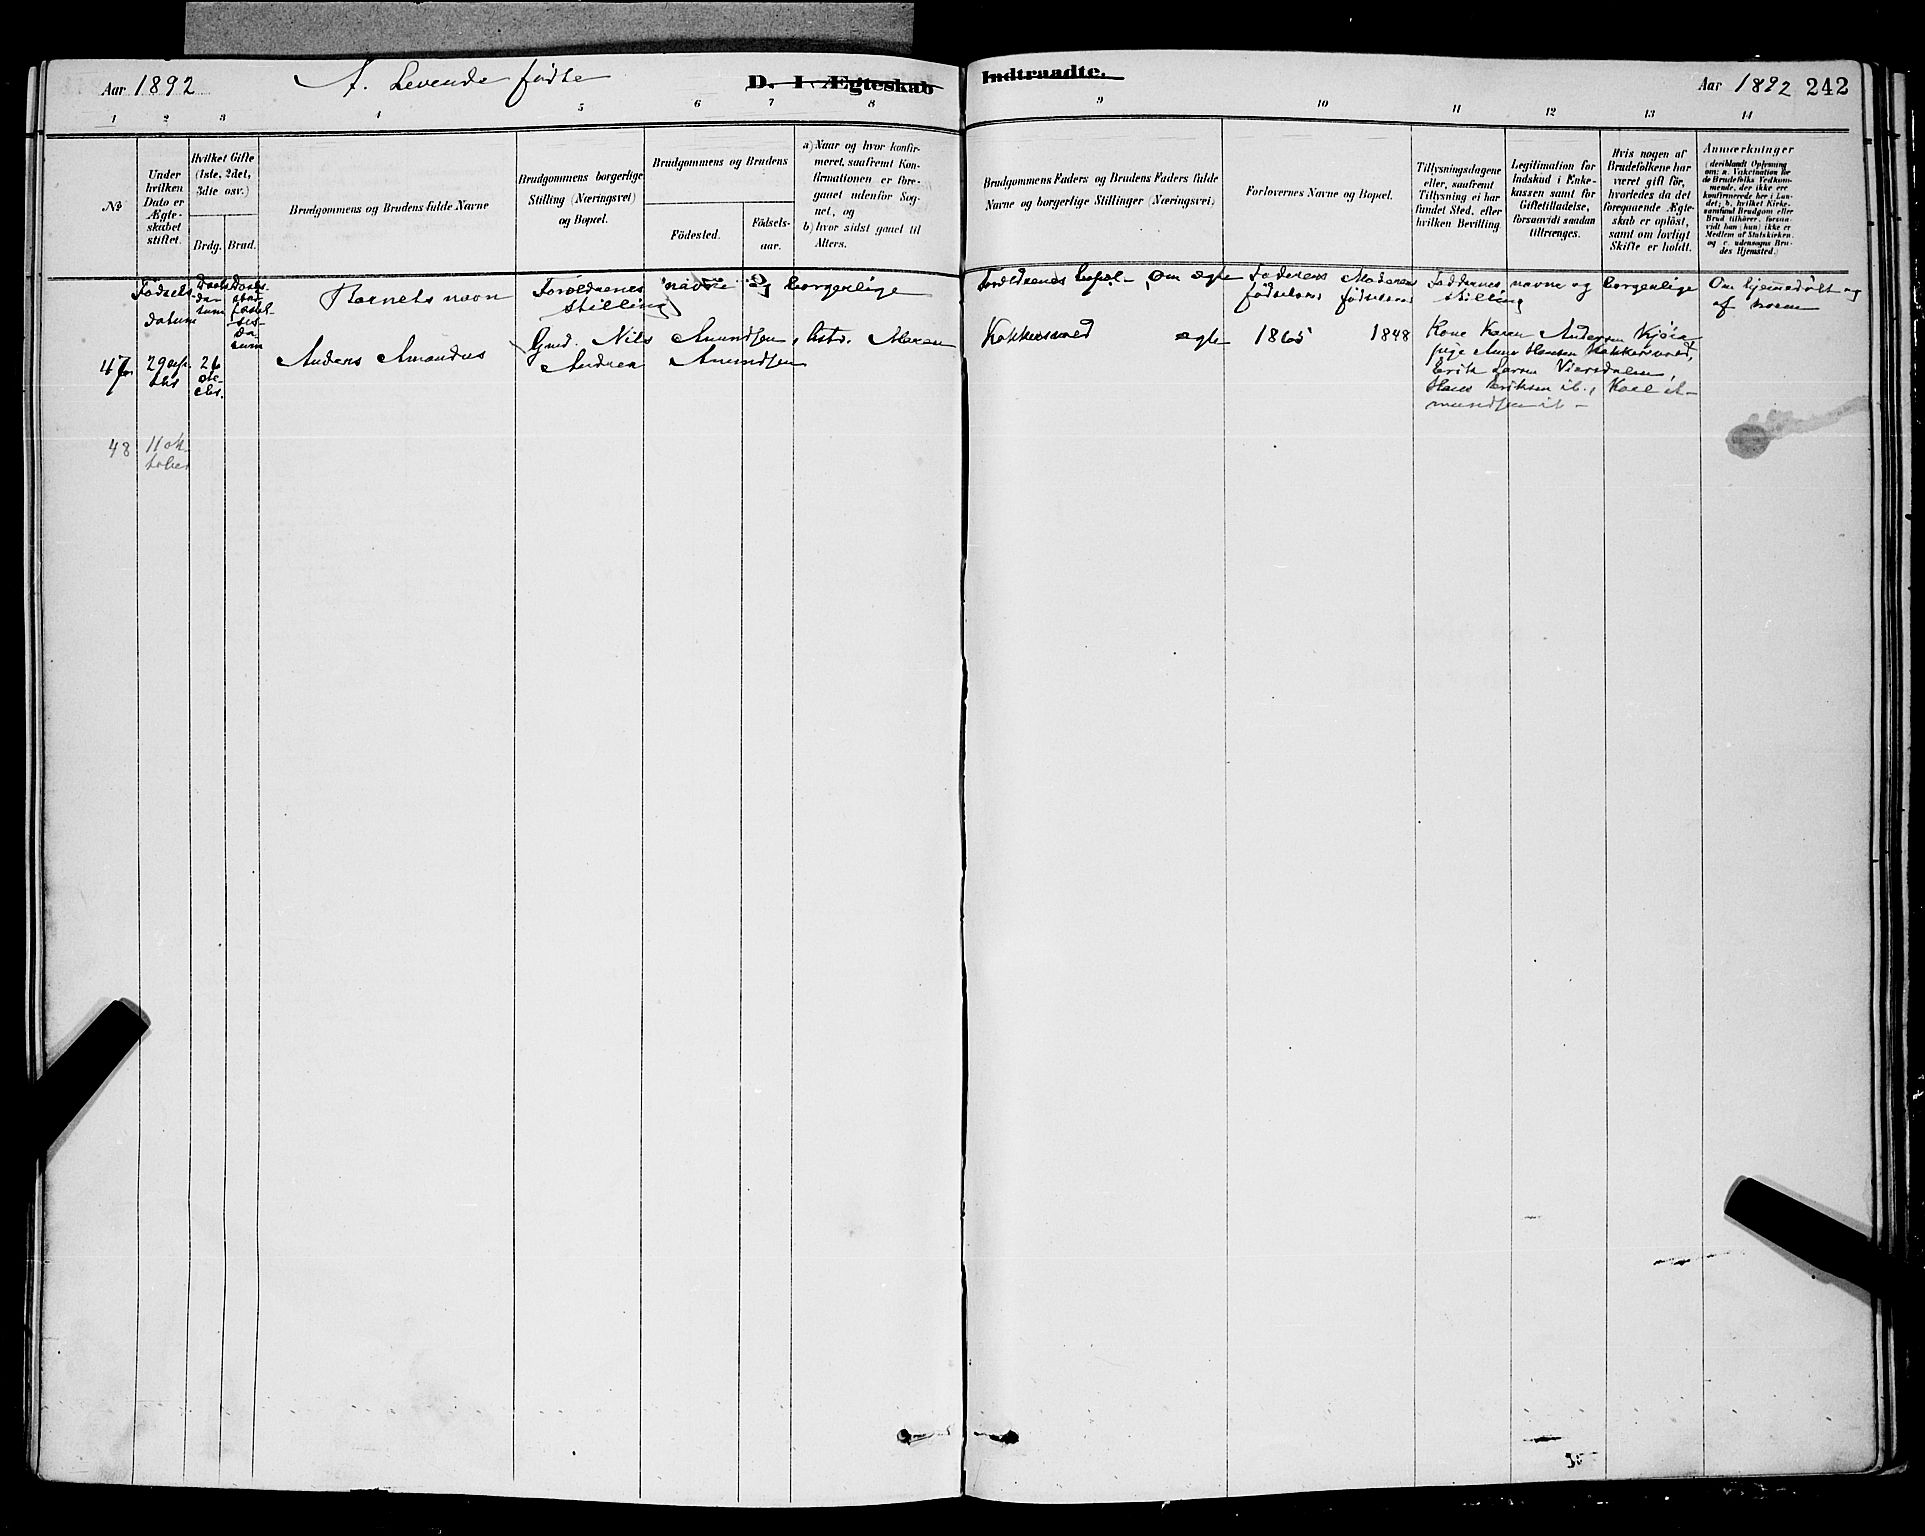 Aar 1892
A. Levende fødte
D. I. Ægteskab Indtraadte.
Aar 1892 242
1 2 3 4 5 6 7 8 9 10 11 12 13 14
№
Under
hvilken
Dato er
Ægte-
skabet
stiftet.
Hvilket Gifte
(1ste, 2det,
3die osv.)
Brdg. Brud.
Brudgommens og Brudens fulde Navne
Brudgommens borgerlige
Stilling (Næringsvei)
og Bopæl.
Brudgommens og Brudens
Födested.
Födsels-
aar.
a) Naar og hvor konfir-
meret, saafremt Kon-
firmationen er fore-
gaaet udenfor Sog-
net, og
b) hvor sidst gaaet til
Alters.
Brudgommens Faders og Brudens Faders fulde
Navne og borgerlige Stillinger (Næringsvei)
Forlovernes Navne og Bopæl.
Tillysningsdagene
eller, saafremt
Tillysning ei har
fundet Sted, efter
hvilken Bevilling
Legitimation for
Indskud i Enke-
kassen samt for
Giftetilladelse,
forsaavidt saadan
tiltrænges.
Hvis nogen af
Brudefolkene har
været gift för,
hvorledes da det
foregaaende Ægte-
skab er oplöst,
samt om lovligt
Skifte er holdt.
Anmærkninger
(deriblandt Oplysning
om: a. Vakcination for
de Brudefolks Vedkom-
mende, der ikke ere
konfirmerede her i Lan-
det; b. hvilket Kirke-
samfund Brudgom eller
Brud tilhörer, forsaa-
vidt han (hun) ikke er
Medlem af Statskirken.
og c. udensogns Bru-
des Hjemsted.)
Fødsels-
datum
Daabs
da
tum
Barnets navn
Forældrenes navne og borgerlige
stilling
Forældrenes bopæl - Om ægte
Faderens
fødselsaar
Moderens
fødselsaar
Faddernes navne og borgerlige
stilling
Om hjemedøbt og
af hvem
47
29 sep-
tbr
26
ok-
tbr.
Anders Amandus
Gmd. Nils Amundsen, hstr. Maren
Andrea Amundsen
Kokkersvold ægte 1865 1848
Kone Karen Andersen Kjöia
pige Anne Hansen Kokkersvold,
Erik Larsen Viersdalen,
Hans Eriksen ib., Karl A-
mundsen ib -
48
11 ok-
tober